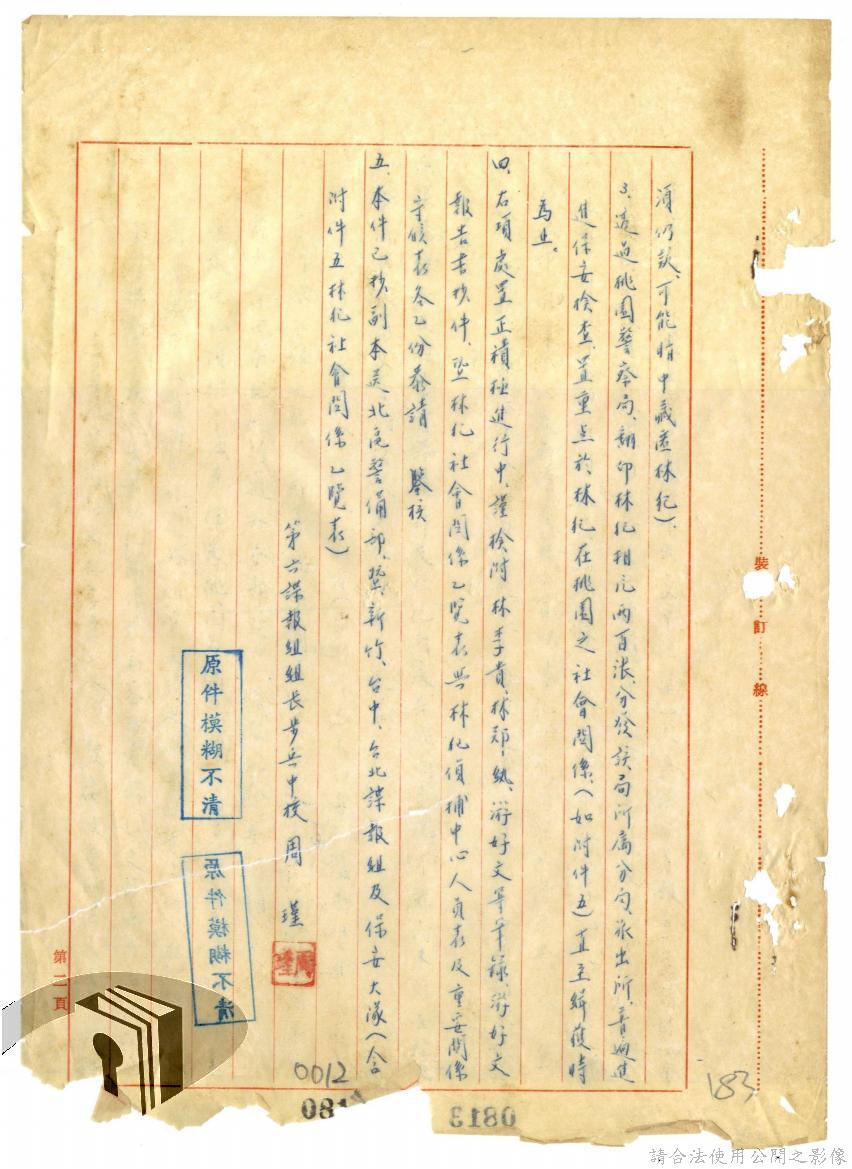 須仍設、可能暗中藏匿林犯)。
3、透過桃園警察局、翻印林犯相片兩百張、分發該局所屬分局、派出所、普遍進
進保安檢查、置重点於林犯在桃園之社會関係、(如附件五)直至緝獲時
為止。
四、右項處置正積極進行中、謹檢附林李貴、林郑紈、游好文等筆錄、游好文
報告書抄件、暨林犯社會関係乙覽表與林犯偵捕中心人員表及重要関係
守候表各乙份恭請 鑒核
五、本件已抄副本送北區警備部、暨新竹、台中、台北諜報組及保安大隊(含
附件五林犯社會関係乙覽表)
第六諜報組組長步兵中校周 瑾
原件模糊不清
原件模糊不清
裝訂線
第二頁
0012
0813
183
請合法使用公開之影像